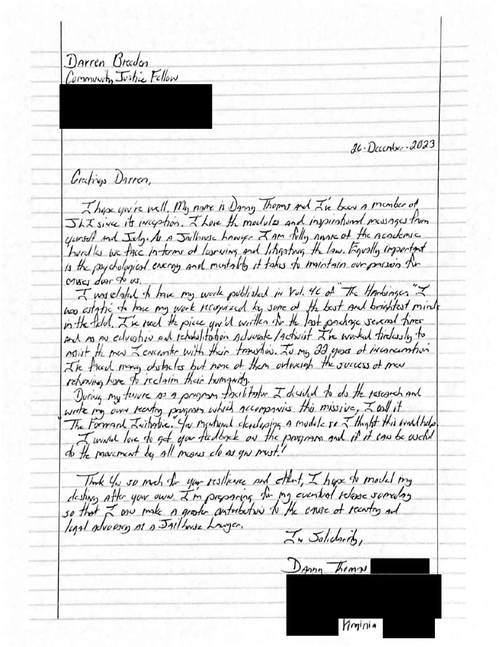 Darren Breeden
Community Justice Fellow
26-December-2023
Greetings Darren,
I hope you're well. My name is Danny Thomas and I've been a member of
JLI since its inception. I love the modules and inspirational messages from
yourself and Jhody. As a Jailhouse Lawyer I am fully aware of the academic
hurdles we face in terms of learning and litigating the law. Equally important
is the psychological energy and mentality it takes to maintain our passion for
causes dear to us.
I was elated to have my work published in Vol. 46 of "The Harbinger." I
was ecstatic to have my work recognized by some of the best and brightest minds
in the field. I've read the piece you'd written for the last package several times
and as an education and rehabilitation Advocate/Activist I've worked tirelessly to
assist the men I encounter with their transition. In my 22 years of incarceration
I've faced many obstacles but none of them outweigh the success of men
returning home to reclaim their humanity.
During my tenure as a program facilitator I decided to do the research and
write my own reentry program which accompanies this missive, I call it
"The Forward Initiative." You mentioned developing a module so I thought this could help.
I would love to get your feedback on the program and if it can be useful
to the movement by all means do as you must!
Thank You so much for your resilience and effort, I hope to model my
destiny after your own. I'm preparing for my eventual release someday
so that I can make a greater contribution to the cause of reentry and
legal advocacy as a Jailhouse Lawyer.
In Solidarity,
Danny Thomas
Virginia